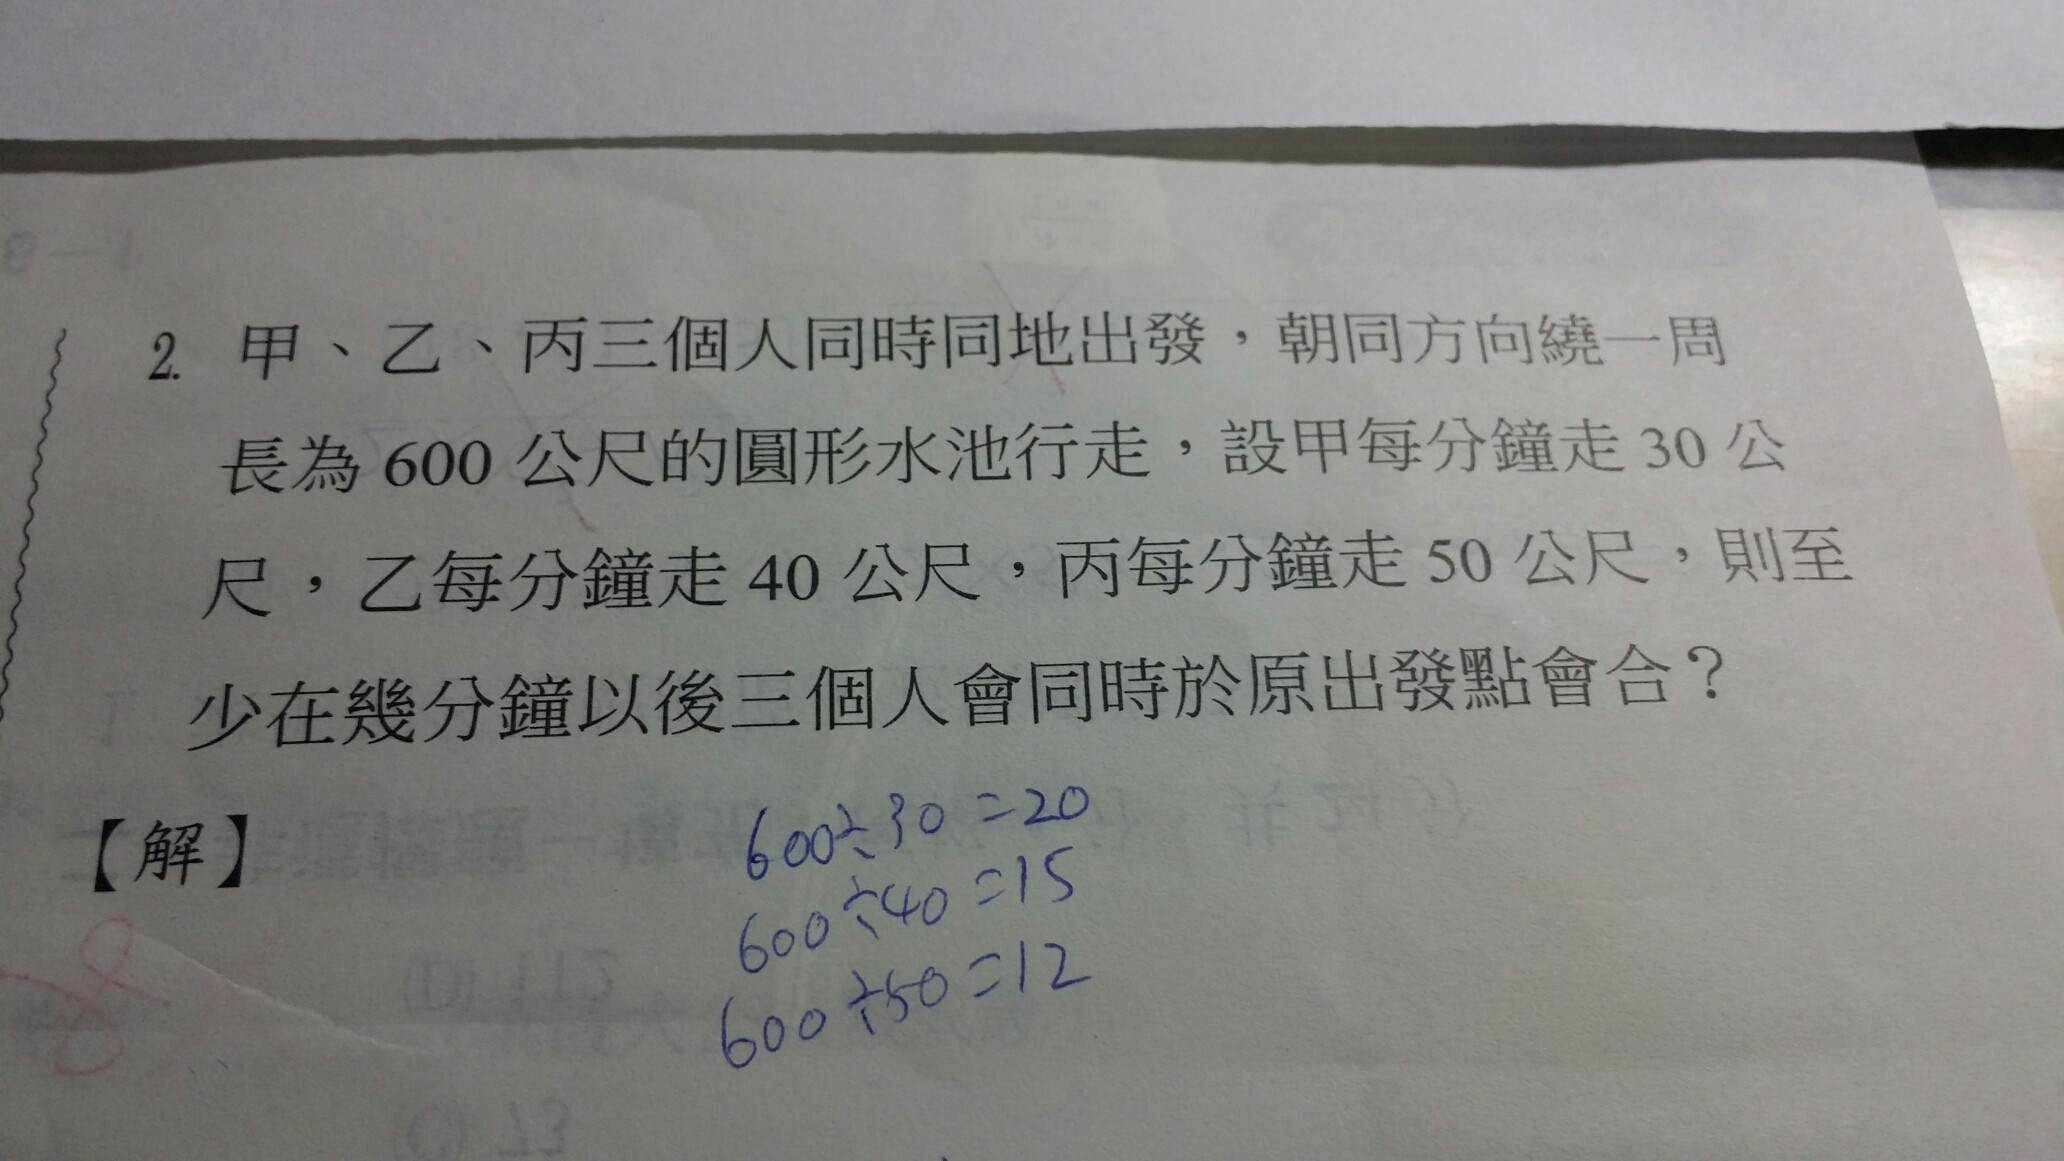 2. 甲、乙、丙三個人同時同地出發，朝同方向繞一周
長為 600 公尺的圓形水池行走，設甲每分鐘走 30 公
尺，乙每分鐘走 40 公尺，丙每分鐘走 50 公尺，則至
少在幾分鐘以後三個人會同時於原出發點會合？
【解】
600÷30=20
600÷40=15
600÷50=12